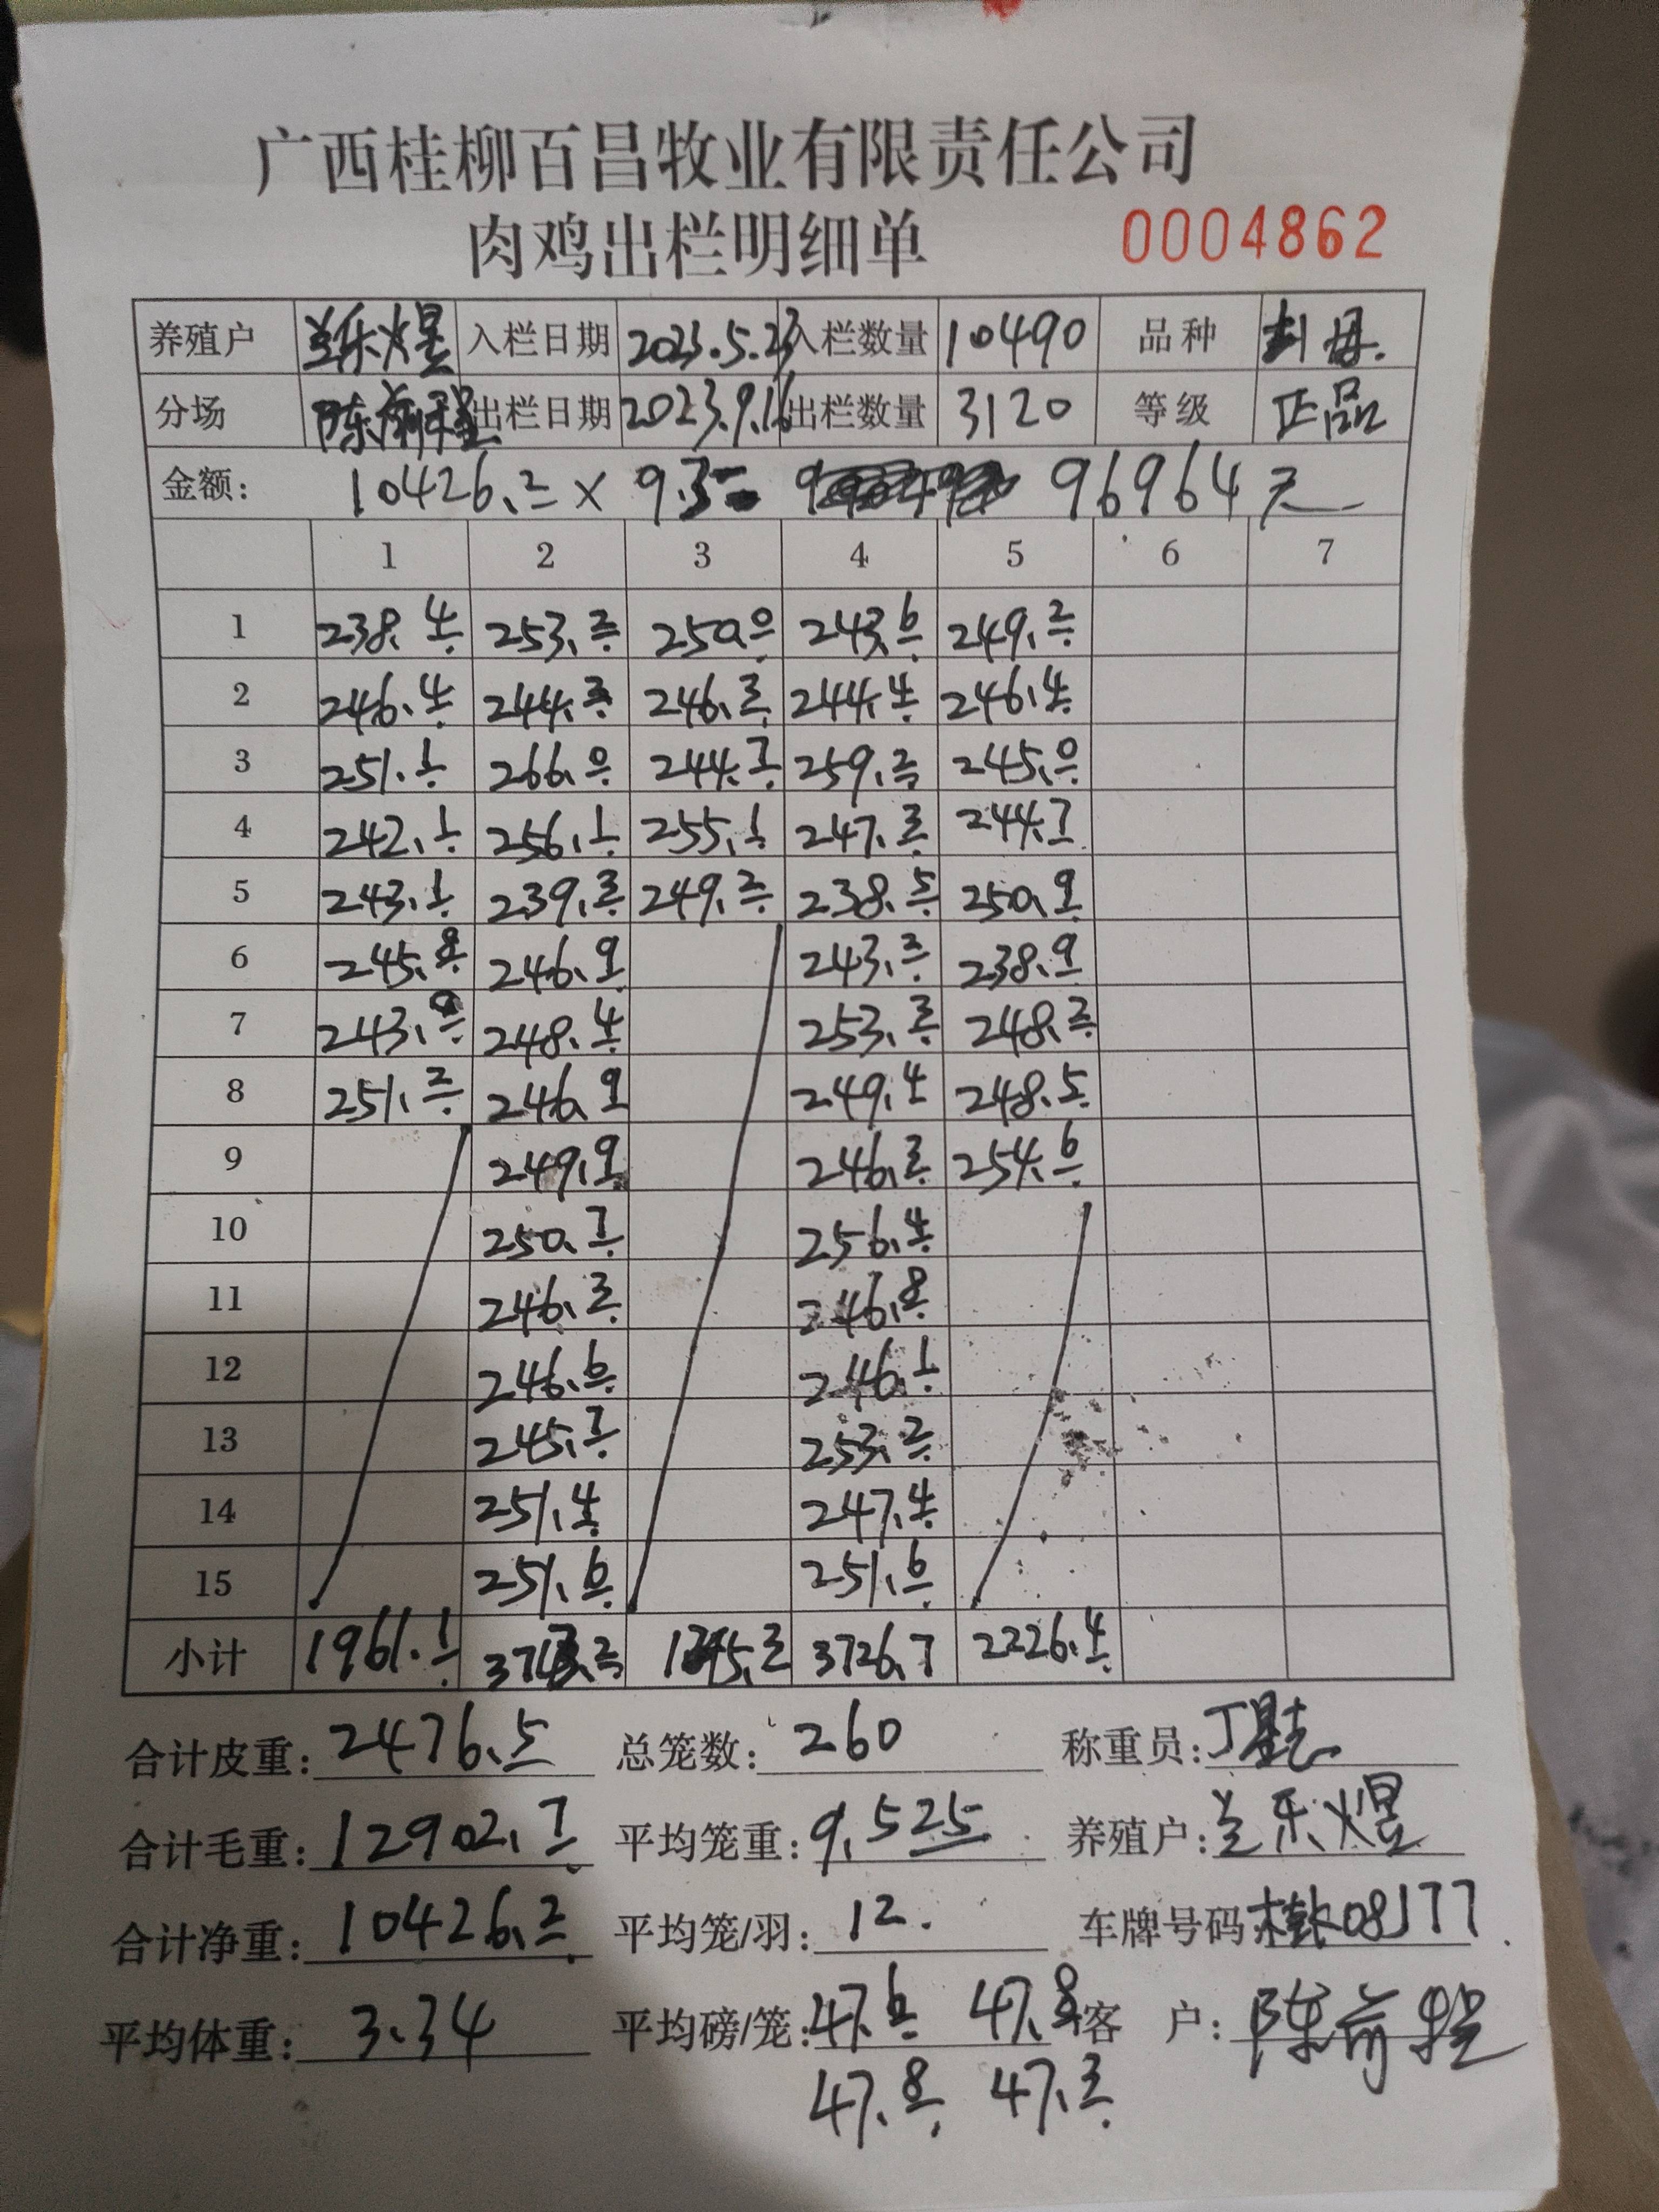 广西桂柳百昌牧业有限责任公司
肉鸡出栏明细单 0004862
养殖户 兰乐煜 入栏日期 2023.5.23 入栏数量 10490 品种
分场 陈前程 出栏日期 2023.9.16 出栏数量 3120 等级 正品
金额: 10426.2 × 9.3 96964元
1 2 3 4 5 6 7
1 238.4 253.2 250.0 243.6 249.2
2 246.4 244.3 246.3 244.4 246.4
3 251.1 266.0 244.7 259.2 245.0
4 242.1 256.1 255.1 247.3 244.7
5 243.1 239.3 249.2 238.5 250.9
6 245.8 246.9 243.3 238.9
7 243.0 248.4 253.3 248.3
8 251.2 246.9 249.4 248.5
9 249.9 246.3 254.6
10 250.7 256.4
11 246.2 246.8
12 246.6 246.1
13 245.7 253.2
14 251.4 247.4
15 251.6 251.6
小计 1961.1 3743.2 1245.3 3726.7 2226.4
合计皮重: 2476.5 总笼数: 260 称重员:
合计毛重: 12902.7 平均笼重: 9.525 养殖户: 兰乐煜
合计净重: 10426.2 平均笼/羽: 12. 车牌号码 桂K08177
平均体重: 3.34 平均磅/笼: 47.6 47.8 客 户: 陈前程
47.8 47.3